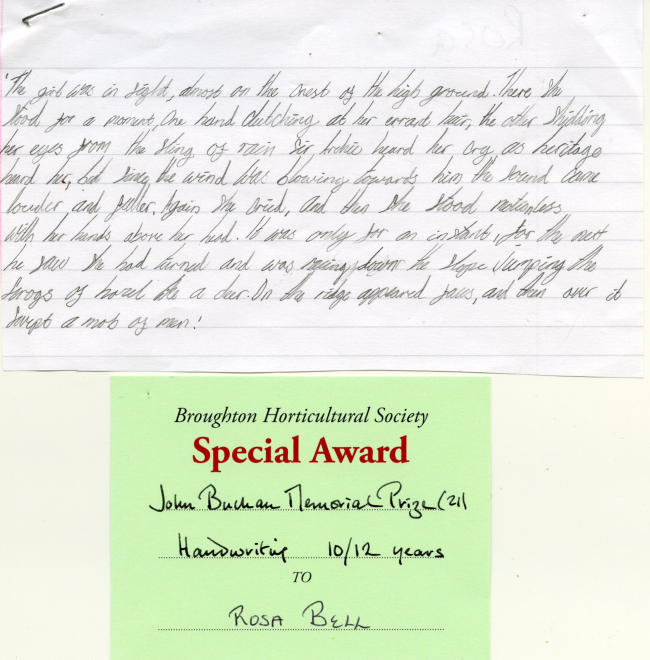 Rosa
'The girl was in sight, almost on the crest of the high ground. There she
stood for a moment, one hand clutching at her errant hair, the other shielding
her eyes from the sting of rain. Sir Archie heard her cry, as heritage
heard her, but since the wind was blowing towards him, the sound came
louder and fuller. Again she cried, and then she stood motionless
with her hands above her head. It was only for an instant, for the next
he saw she had turned and was racing down the slope jumping the
scrogs of hazel like a deer. On the ridge appeared faces, and then over it
swept a mob of men!
Broughton Horticultural Society
Special Award
John Buchan Memorial Prize (21)
Handwriting 10/12 years
TO
ROSA BELL